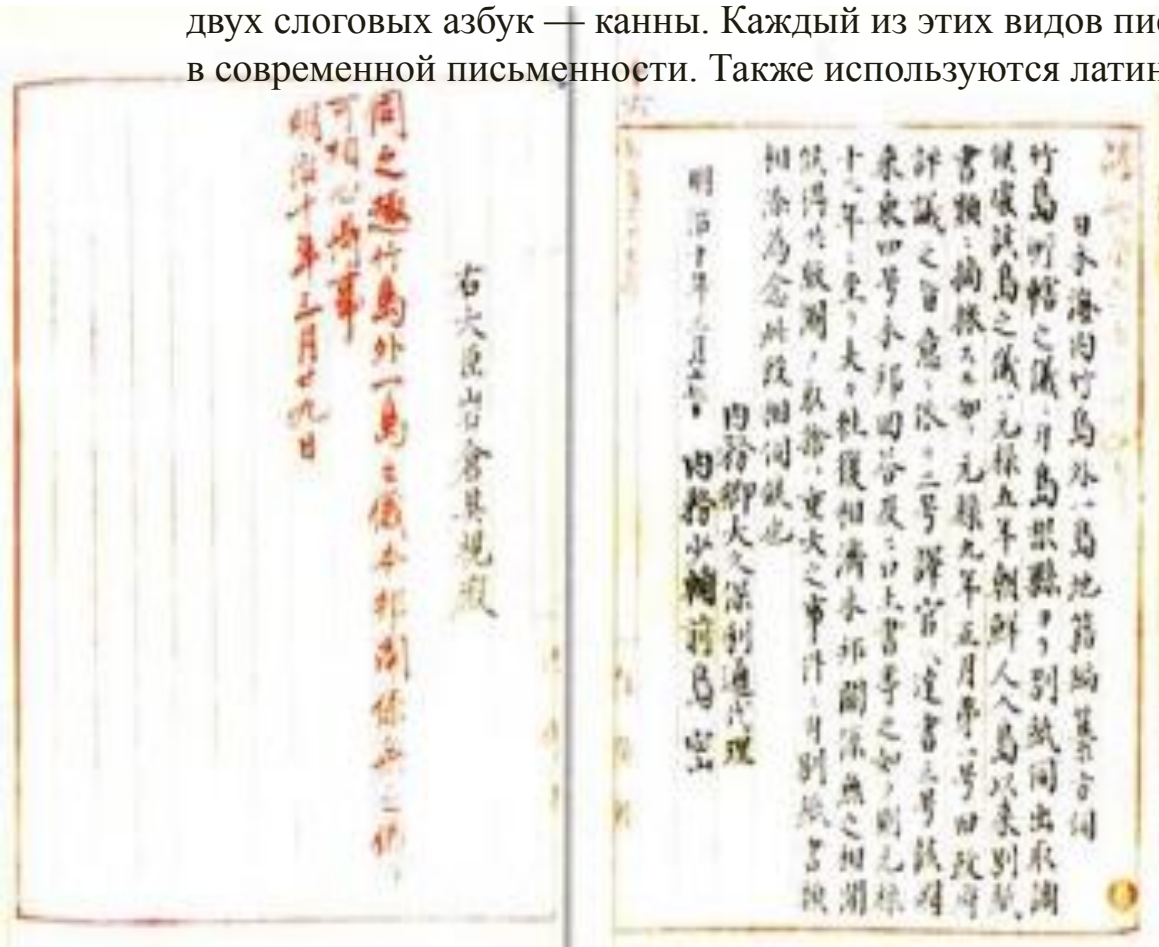 двух слоговых азбук — канны. Каждый из этих видов пис
в современной письменности. Также используются латин
日本海内竹島外一島地籍編纂方伺
竹島所轄之儀ニ付島根縣ヨリ別紙伺出取調
候處該島之儀ハ元禄五年朝鮮人入島以来別紙
書類ニ摘採スル如ク元禄九年正月第一号旧政府
評議之旨意ニ依リ二号譯官ヘ達書三号該國
来柬四号本邦回答及ヒ口上書等之如ク則元禄
十二年ニ至リ夫々往復相濟本邦関係無之相聞
候得共版圖ノ取捨ハ重大之事件ニ付別紙書類
相添為念此段相伺候也
内務卿大久保利通代理
明治十年三月十七日 内務少輔前島密
右大臣岩倉具視殿
伺之趣竹島外一島之儀本邦関係無之儀ト
可相心得事
明治十年三月廿九日